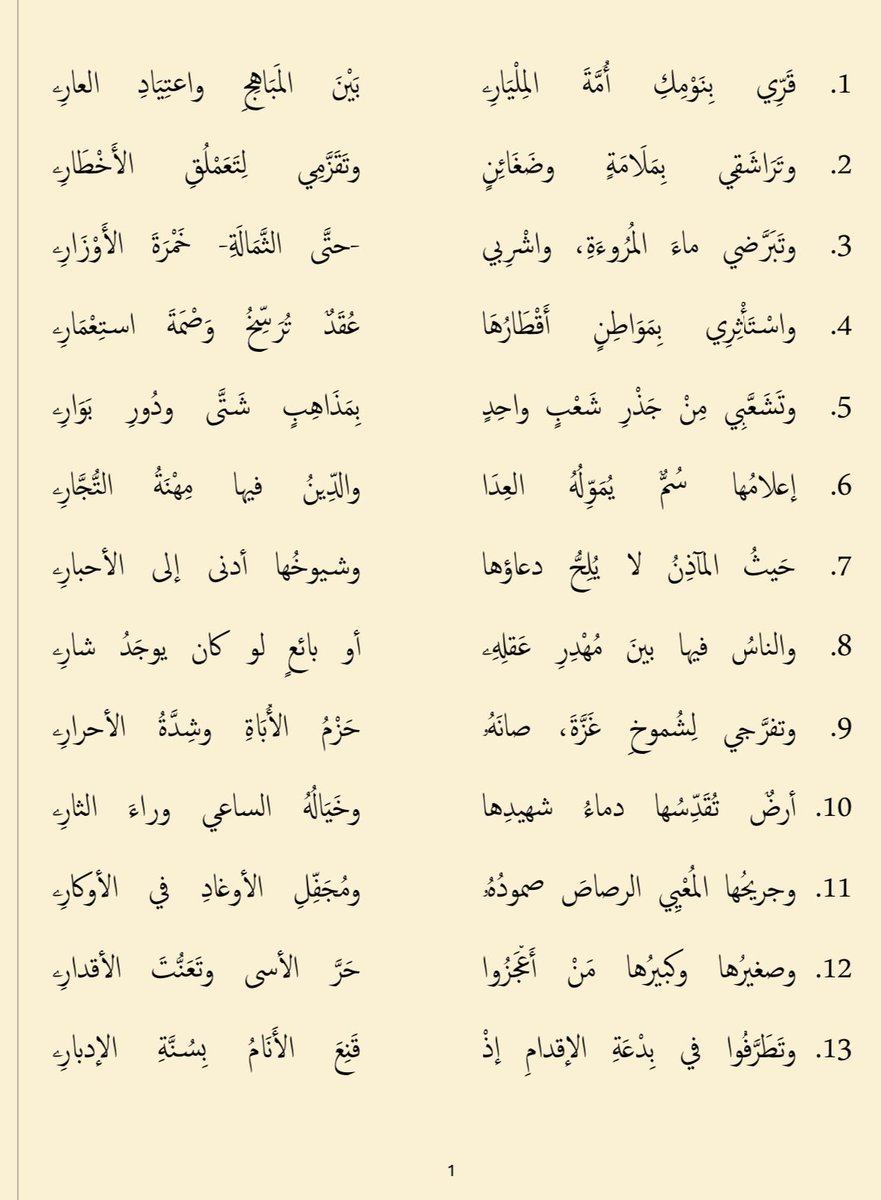 1. قَرِّي بِنَوْمِكِ أُمَّةَ المِلْيَارِ بَيْنَ المَبَاهِجِ واعتِيَادِ العارِ
2. وتَرَاشَقِي بِمَلَامَةٍ وضَغَائِنٍ وتَقَزَّمِي لِتَعَمْلُقِ الأَخْطَارِ
3. وتَبَرَّضي ماءَ المُرُوءَةِ، واشْرِبي -حتَّى الثَّمَالَةِ- خَمْرَةَ الأَوْزَارِ
4. واسْتَأْثِرِي بِمَوَاطِنٍ أَقْطَارُهَا عُقَدٌ تُرَسِّخُ وَصْمَةَ استِعْمَارِ
5. وتَشَعَّبِي مِنْ جَذْرِ شَعْبٍ واحِدٍ بِمَذَاهِبٍ شَتَّى ودُورِ بَوَارِ
6. إعلامُها سُمٌّ يُمَوِّلُهُ العِدَا والدِّينُ فيها مِهْنَةُ التُّجَّارِ
7. حَيثُ المآذِنُ لا يُلِحُّ دعاؤها وشيوخُها أدنى إلى الأحبارِ
8. والناسُ فيها بينَ مُهْدِرِ عَقلِهِ أو بائعٍ لو كان يوجَدُ شارِ
9. وتفرَّجي لِشُموخِ غَزَّةَ، صانَهُ حَزْمُ الأُبَاةِ وشِدَّةُ الأحرارِ
10. أرضٌ تُقَدِّسُها دماءُ شهيدِها وخَيَالُهُ الساعي وراءَ الثارِ
11. وجريحُها المُعْيِي الرصاصَ صمودُهُ ومُجَفِّلِ الأوغادِ في الأوكارِ
12. وصغيرُها وكبيرُها مَنْ أَعْجَزُوا حَرَّ الأسى وتَعَنُّتَ الأقدارِ
13. وتَطَرَّفُوا في بِدْعَةِ الإقدامِ إذْ قَنِعَ الأَنَامُ بِسُنَّةِ الإدبارِ
1